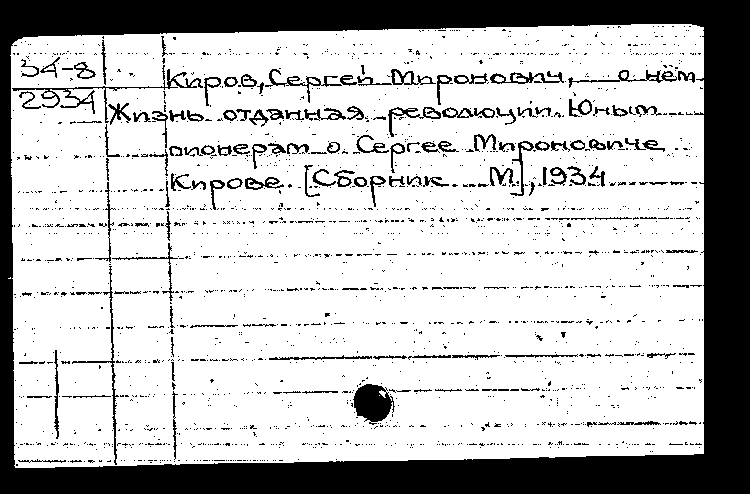 34-8
2934
Киров, Сергей Миронович, о нём
Жизнь отданная революции. Юным
пионерам о Сергее Мироновиче
Кирове. [Сборник М], 1934